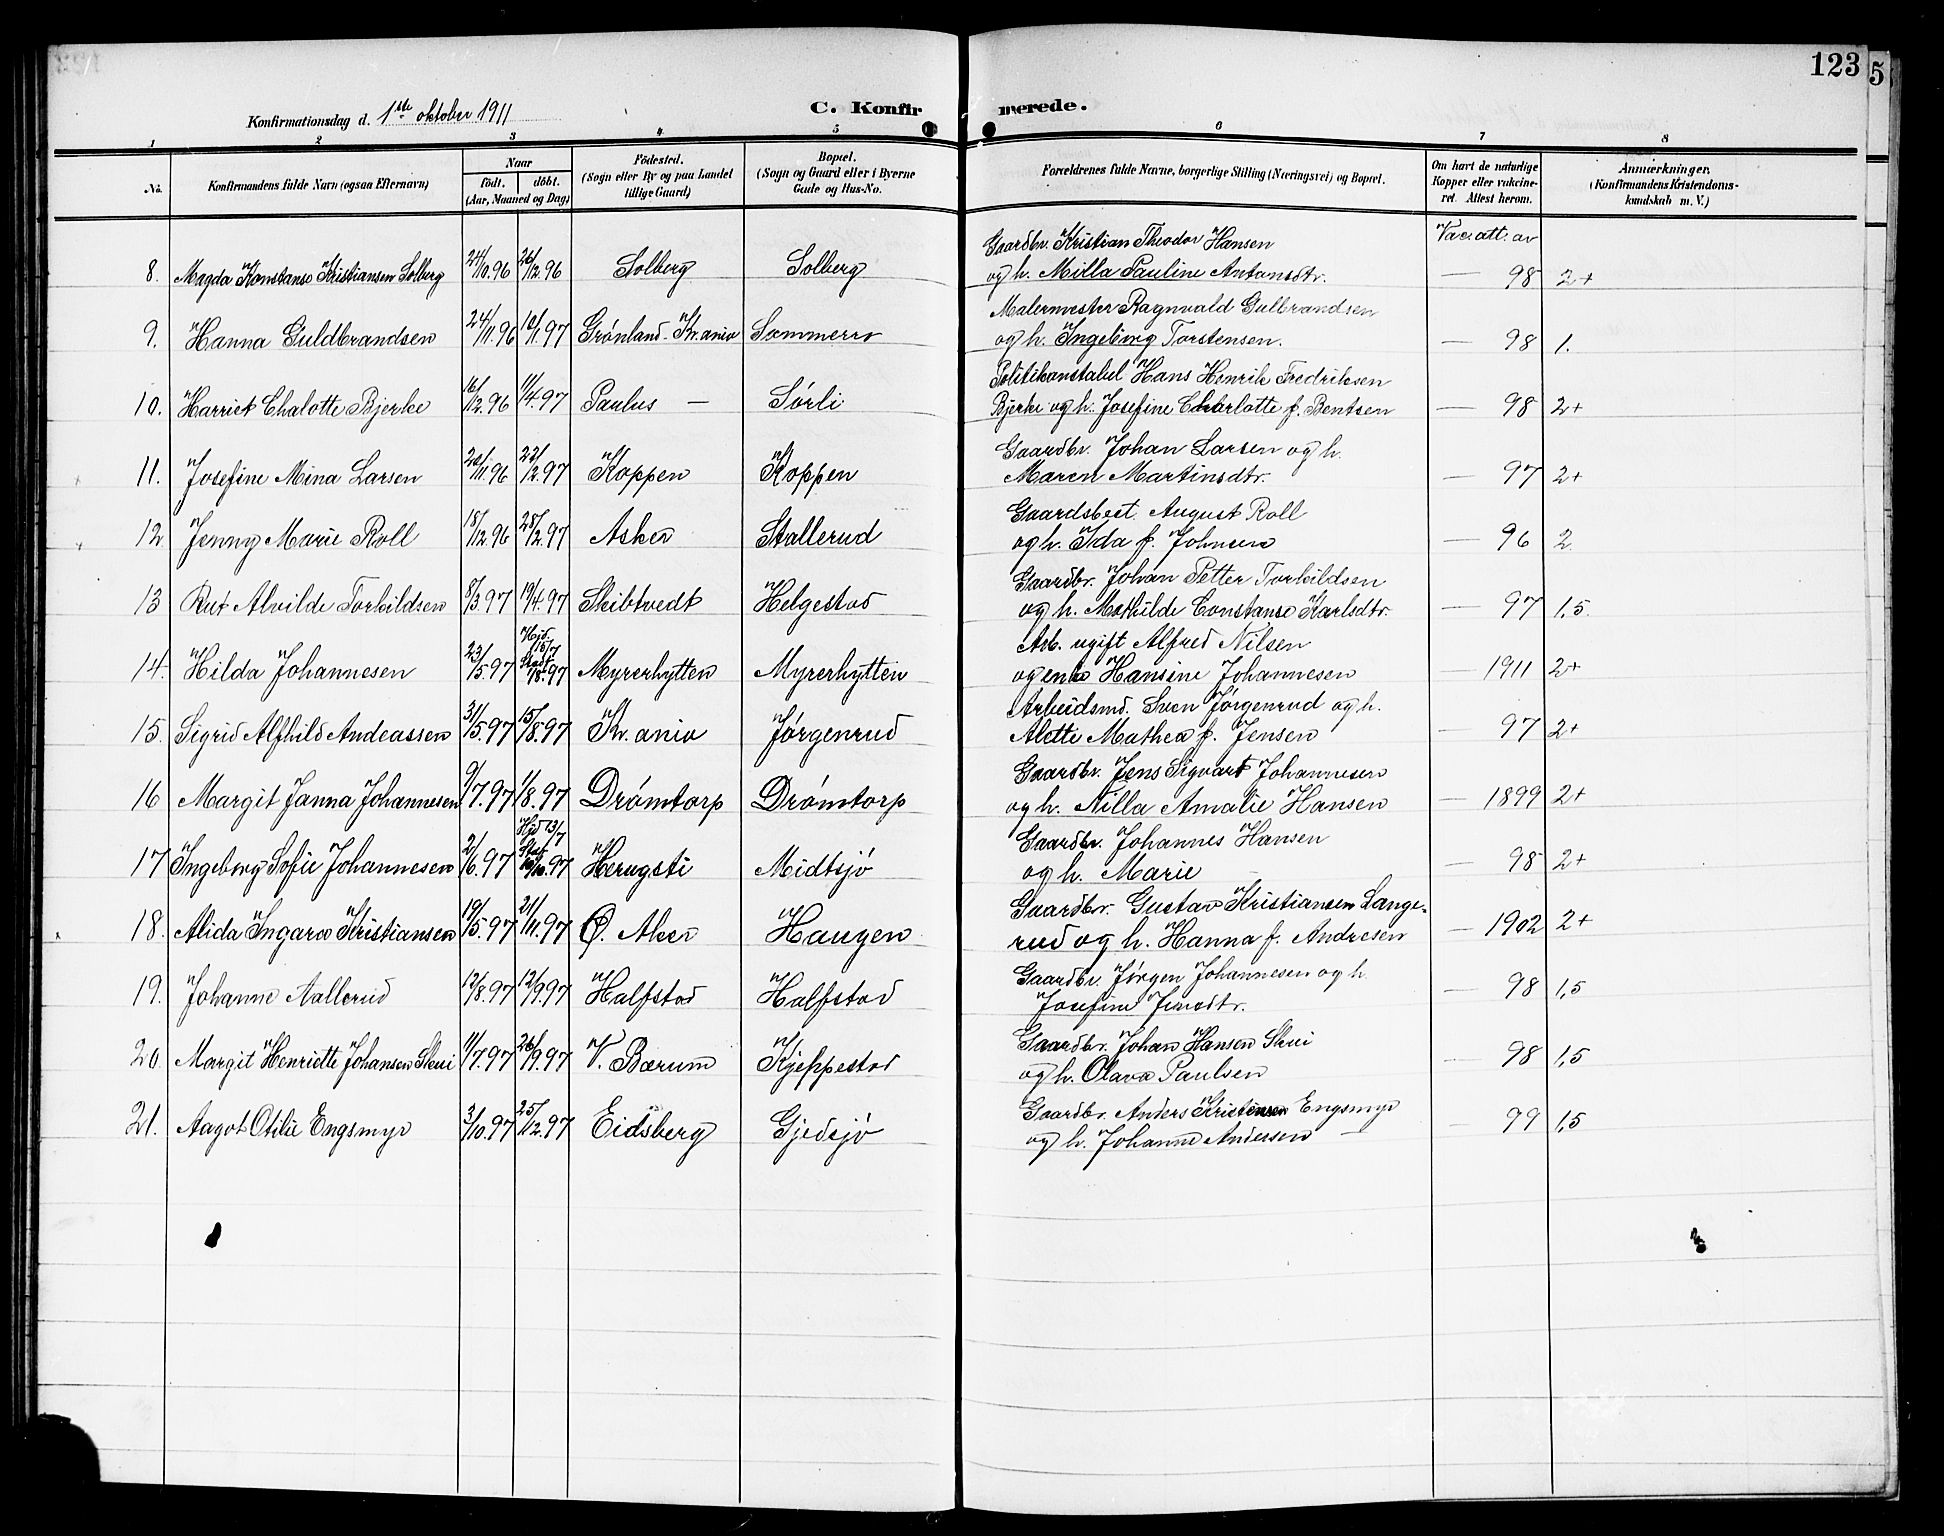 123
5
Konfirmationsdag d. 1ste oktober 1911
C. Konfirmerede.
1 2 3 4 5 6 7 8
No. Konfirmandens fulde Navn (ogsaa Efternavn) Naar födt. döbt. (Aar, Maaned og Dag) Födested. (Sogn eller By og paa Landet tillige Gaard) Bopæl. (Sogn og Gaard eller i Byerne Gade og Hus-No. Forældrenes fulde Navne, borgerlige Stilling (Næringsvei) og Bopæl. Om havt de naturlige Kopper eller vakcineret. Attest herom. Anmærkninger. (Konfirmandens Kristendomskundskab m. V.)
Gaardbr. Kristian Theodor Hansen Vac. att. av
8. Magda Konstanse Kristiansen Solberg 24/10.96 26/12.96 Solberg Solberg og h. Milla Pauline Antonsdtr. — 98 2+
Malermester Ragnvald Gulbrandsen
9. Hanna Guldbrandsen 24/11.96 10/1.97 Grønland. Kr.ania Sommerro og h. Ingeborg Torstensen. — 98 1.
Politikonstabel Hans Henrik Fredriksen
10. Harriet Chalotte Bjerke 16/12.96 11/4.97 Paulus — Sørli Bjerke og h. Josefine Charlotte f. Bentsen — 98 2+
Gaardbr. Johan Larsen og h.
11. Josefine Mina Larsen 20/11.96 22/2.97 Koppen Koppen Maren Martinsdtr. — 97 2+
Gaardsbest. August Roll
12 Jenny Marie Roll 18/12.96 28/2.97 Asker Stallerud og h. Ida f. Johnsen — 96 2
Gaardbr. Johan Petter Torkildsen
13 Rut Alvilde Torkildsen 8/3.97 19/4.97 Skibtvedt Helgestad og h. Mathilde Constanse Karlsdtr. — 97 1,5.
Arb. ugift Alfred Nilsen
14. Hilda Johannesen 23/5.97 Hjd. 15/7 Stadf. /8.97 Myrerhytten Myrerhytten og enke Hansine Johannesen — 1911 2+
Arbeidsmd. Sven Jørgenrud og h.
15. Sigrid Alfhild Andeassen 31/5.97 15/8.97 Kr.ania Jørgenrud Alette Mathea f. Jensen — 97 2+
Gaardbr. Jens Sigvart Johannesen
16 Margit Janna Johannesen 9/7.97 1/8.97 Drømtorp Drømtorp og h. Nilla Amalie Hansen — 1899 2+
Gaardbr. Johannes Hansen
17 Ingeborg Sofie Johannesen 2/6.97 Hjd 13/7 Stadf. 10/10.97 Herugsti Midtsjø og h. Marie — 98 2+
Gaardbr. Gustav Kristiansen Lange-
18. Alida Ingara Kristiansen 19/5.97 21/11.97 Ø. Aker Haugen rud og h. Hanna f. Andresen — 1902 2+
Gaardbr. Jørgen Johannesen og h.
19. Johanne Aallerud 12/8.97 12/9.97 Halfstad Halfstad Josefine Jensdtr. — 98 1,5
Gaardbr. Johan Hansen Skui
20. Margit Henriette Johansen Skui 11/7.97 26/9.97 V. Bærum Kjeppestad og h. Olava Paulsen — 98 1,5
Gaardbr. Anders Kristensen Engsmyr
21. Aagot Otilie Engsmyr 3/10.97 25/12.97 Eidsberg Gjedsjø og h. Johanne Andersen — — 99 1,5